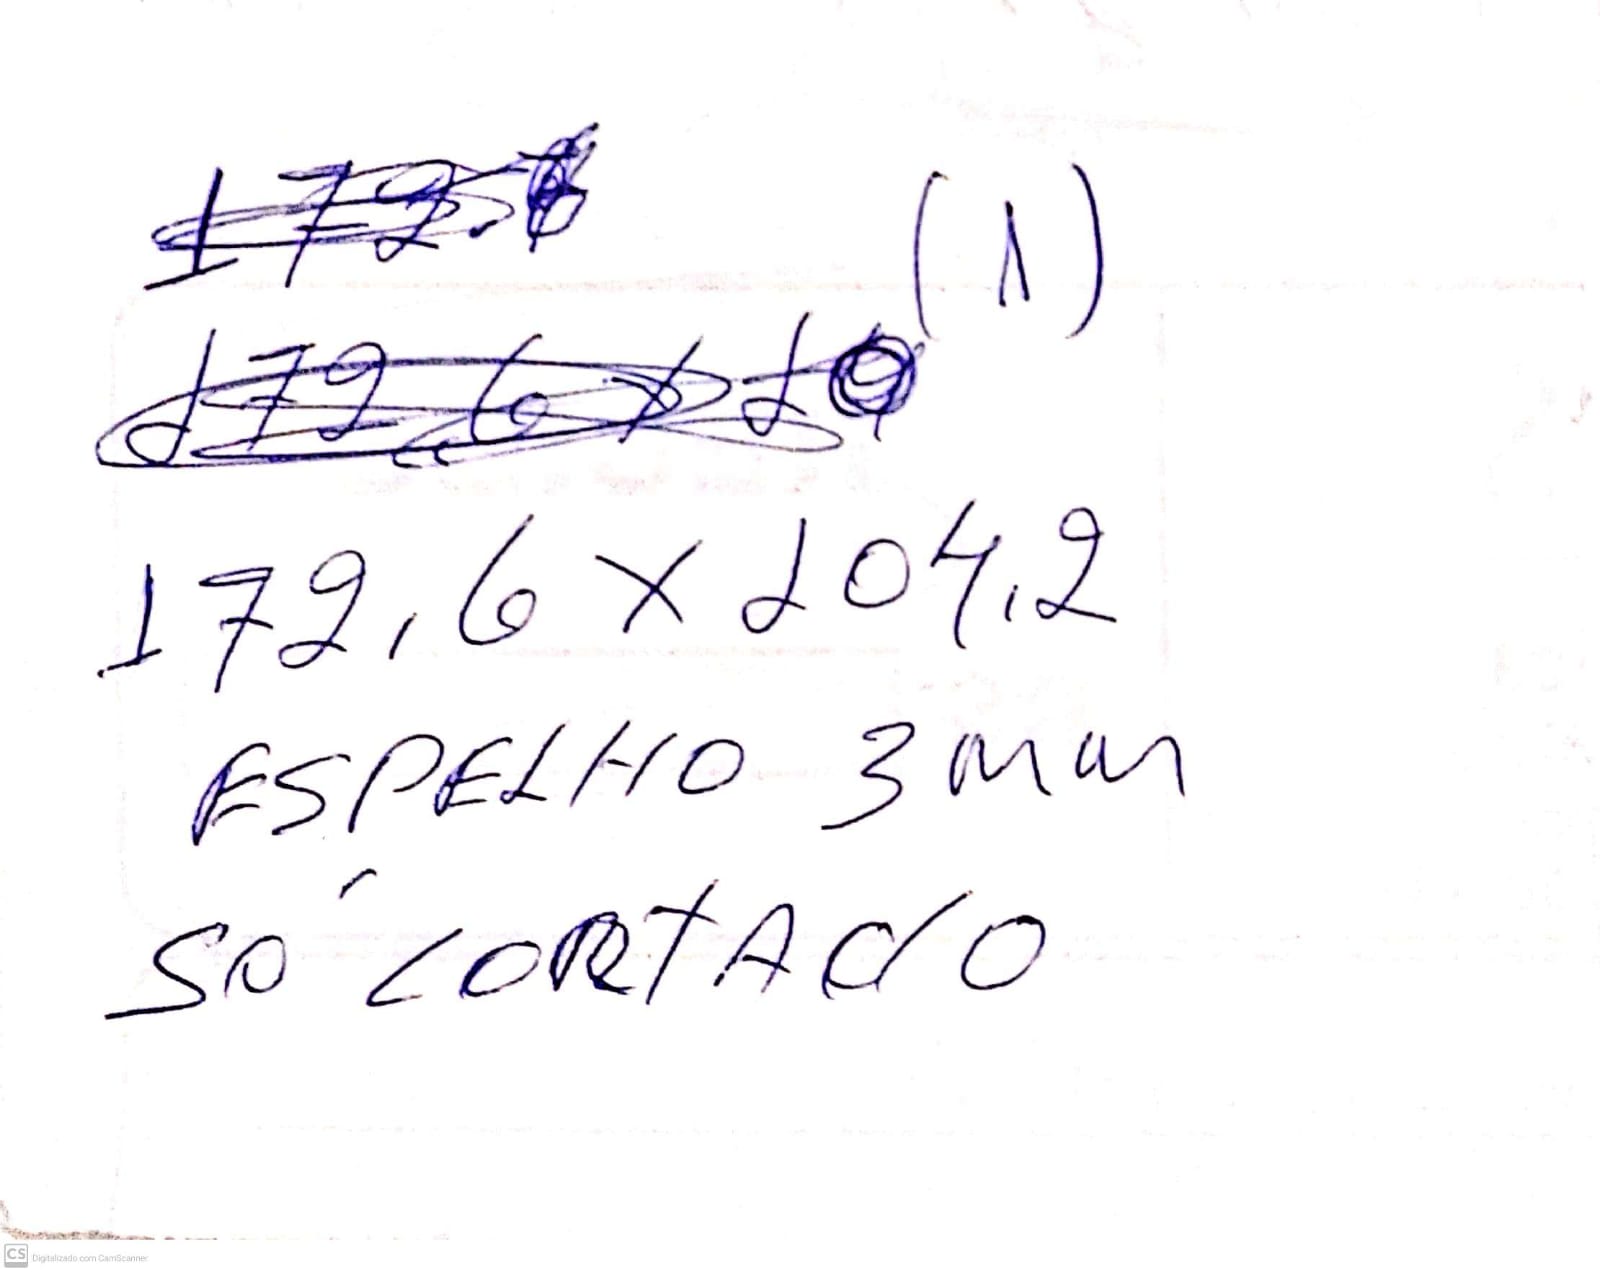 (1)
172,6 x 104,2
ESPELHO 3mm
SÓ CORTADO
CS Digitalizado com CamScanner